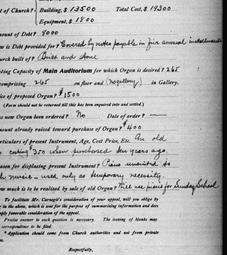 of Church? - Building, $13500 Total Cost, $19300
Equipment, $1800
Amount of Debt? 8000
is Debt provided for? Covered by notes payable in five annual installments
Church built of? Brick and stone
Seating Capacity of Main Auditorium for which Organ is desired? 265
comprising 265 on floor and (no gallery) in Gallery.
Price of proposed Organ? $1500
(Form should not be returned till this has been enquired into and settled.)
new Organ been ordered? No Date of order? —
Amount already raised toward purchase of Organ? $400
Particulars of present Instrument, Age, Cost Price, Etc. An old
costing 350 when purchased ten years ago.
Reason for displacing present Instrument? Piano unsuited to
music - used only as temporary necessity.
How much is to be realized by sale of old Organ? Will use piano for Sunday School
To facilitate Mr. Carnegie's consideration of your appeal, will you oblige by
in the above, which is sent for purpose of summarizing information and does
imply favorable consideration of the appeal.
Precise answer to each question is necessary. The issuing of blanks may
correspondence to be filed.
* Application should come from Church authorities and not from private
Respectfully,